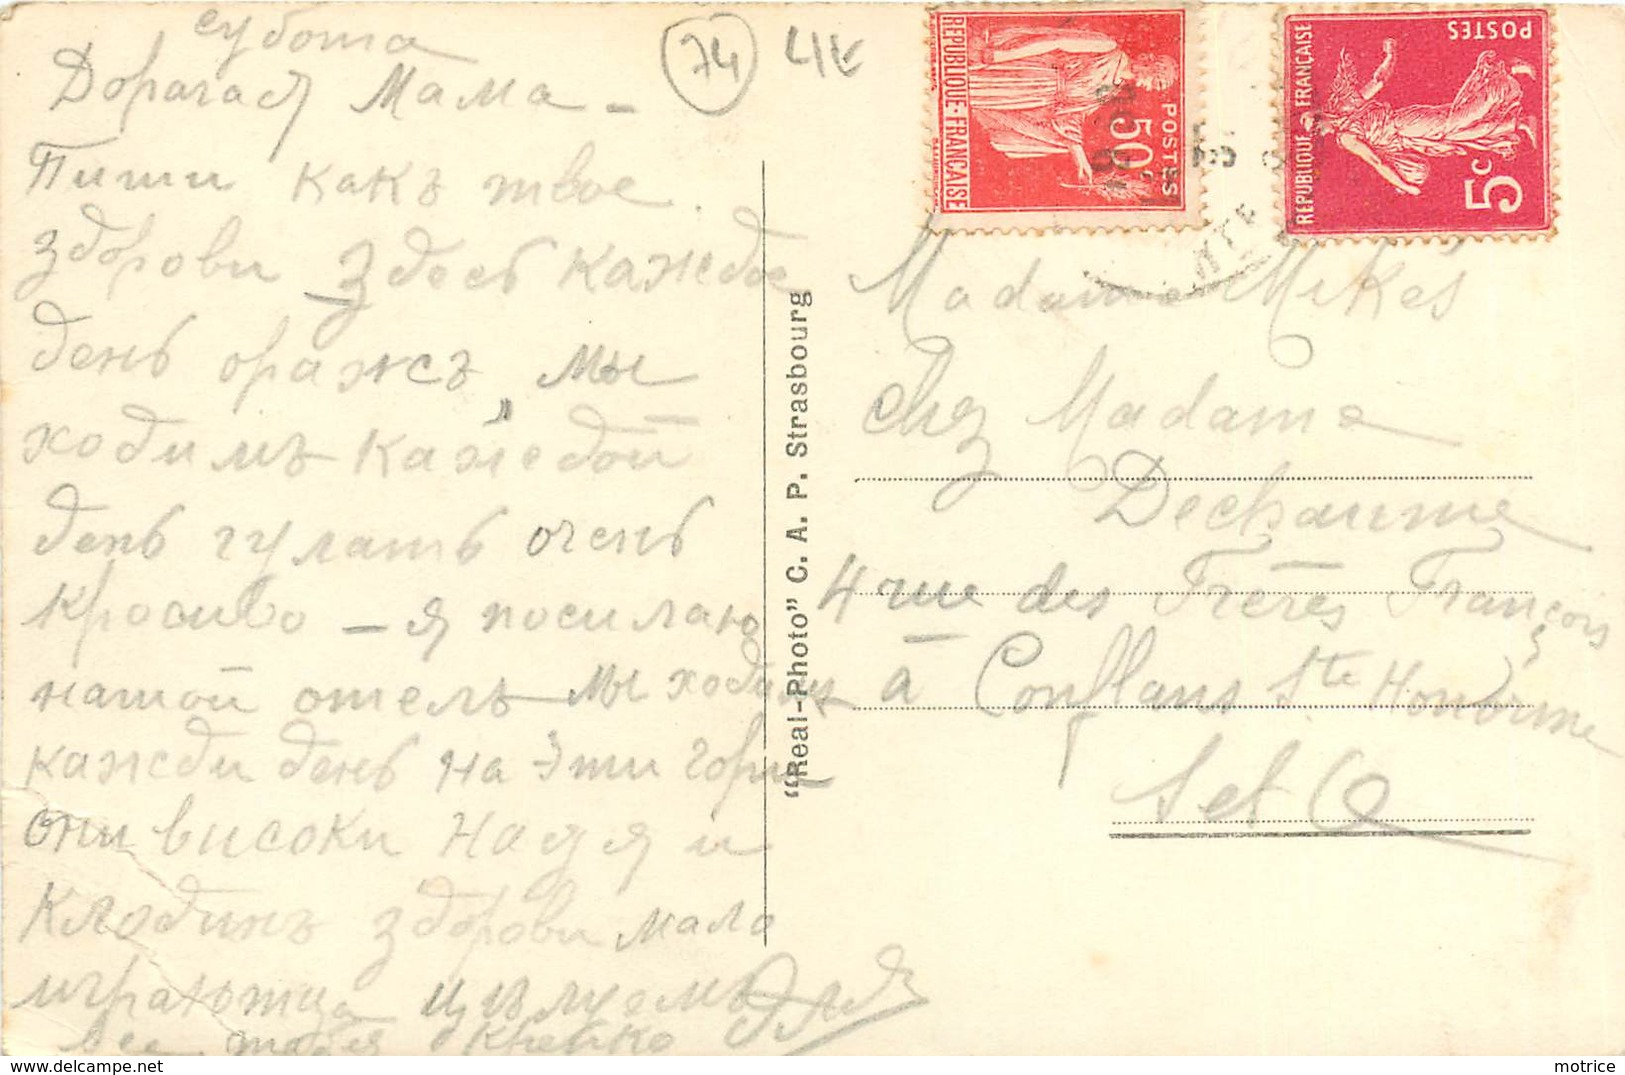 субота
Дорагая Мама –
Пиши какъ твое
здорови Здесь каждое
день оражъ, мы
ходимъ каждой
день гулать очень
красиво – я посилаю
нашой отель мы ходимъ
кажди день на эти гори
они високи Надя и
Клодинъ здорови мало
играютца цълуемъ
все тебя кнепко
74
REPUBLIQUE·FRANÇAISE
POSTES
50c
REPUBLIQUE FRANÇAISE
POSTES
5c
"Real-Photo" C. A. P. Strasbourg
Madame Mikes
chez Madame
Dechaume
4 rue des Frères François
à Conflans Ste Honorine
S et O
motrice